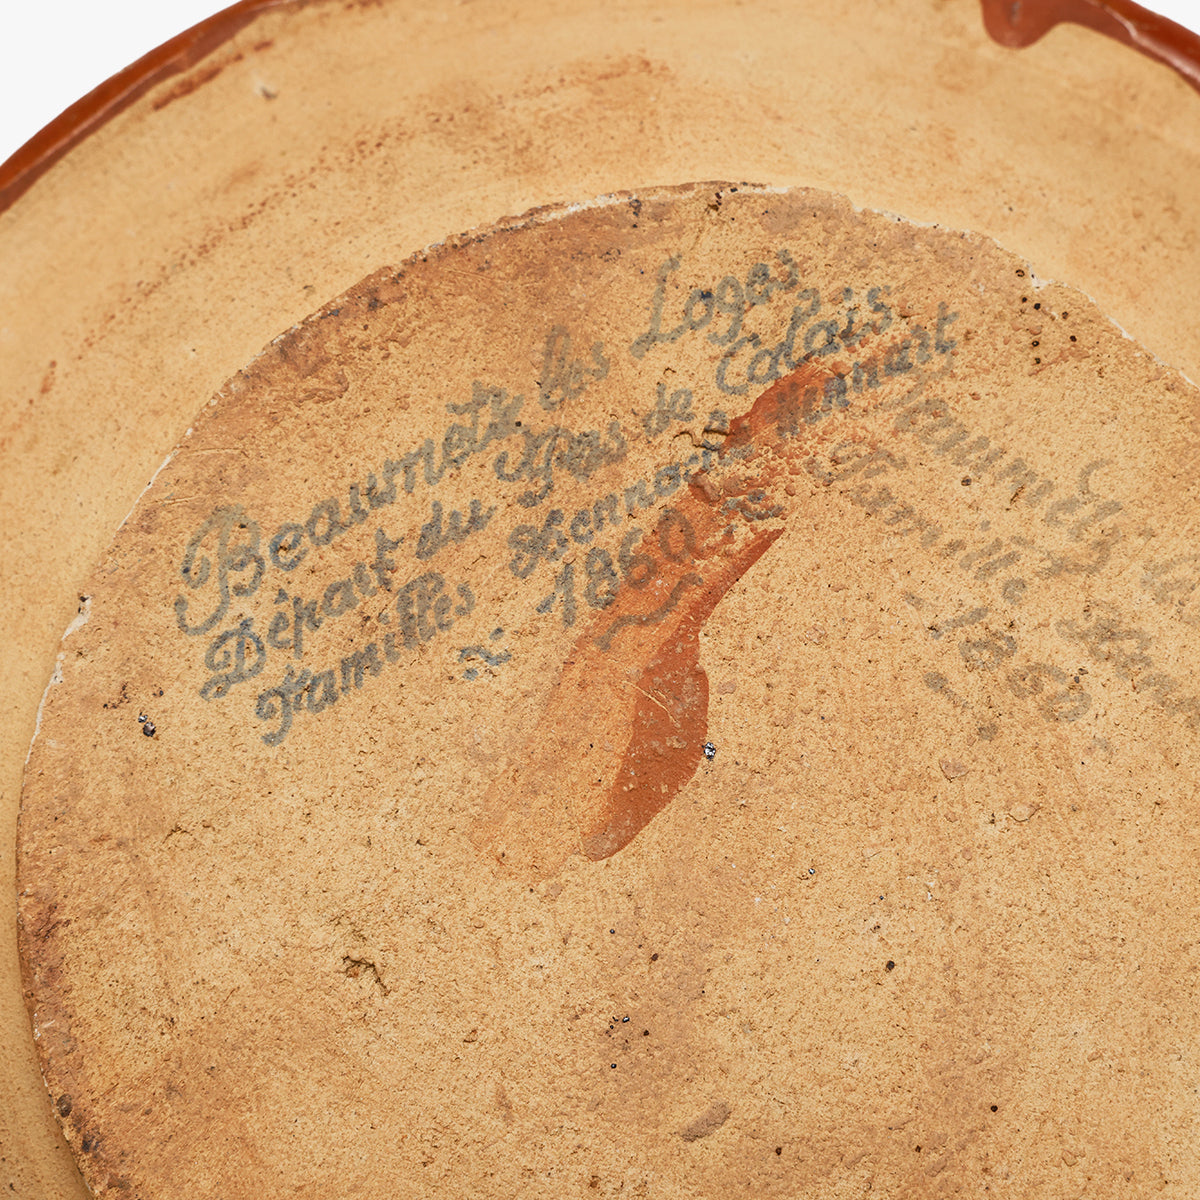 Beaumetz les Loges
Départ du Pas de Calais
Familles Hennocht Hennart
~ 1860 ~
Beaumetz
Famille
1860